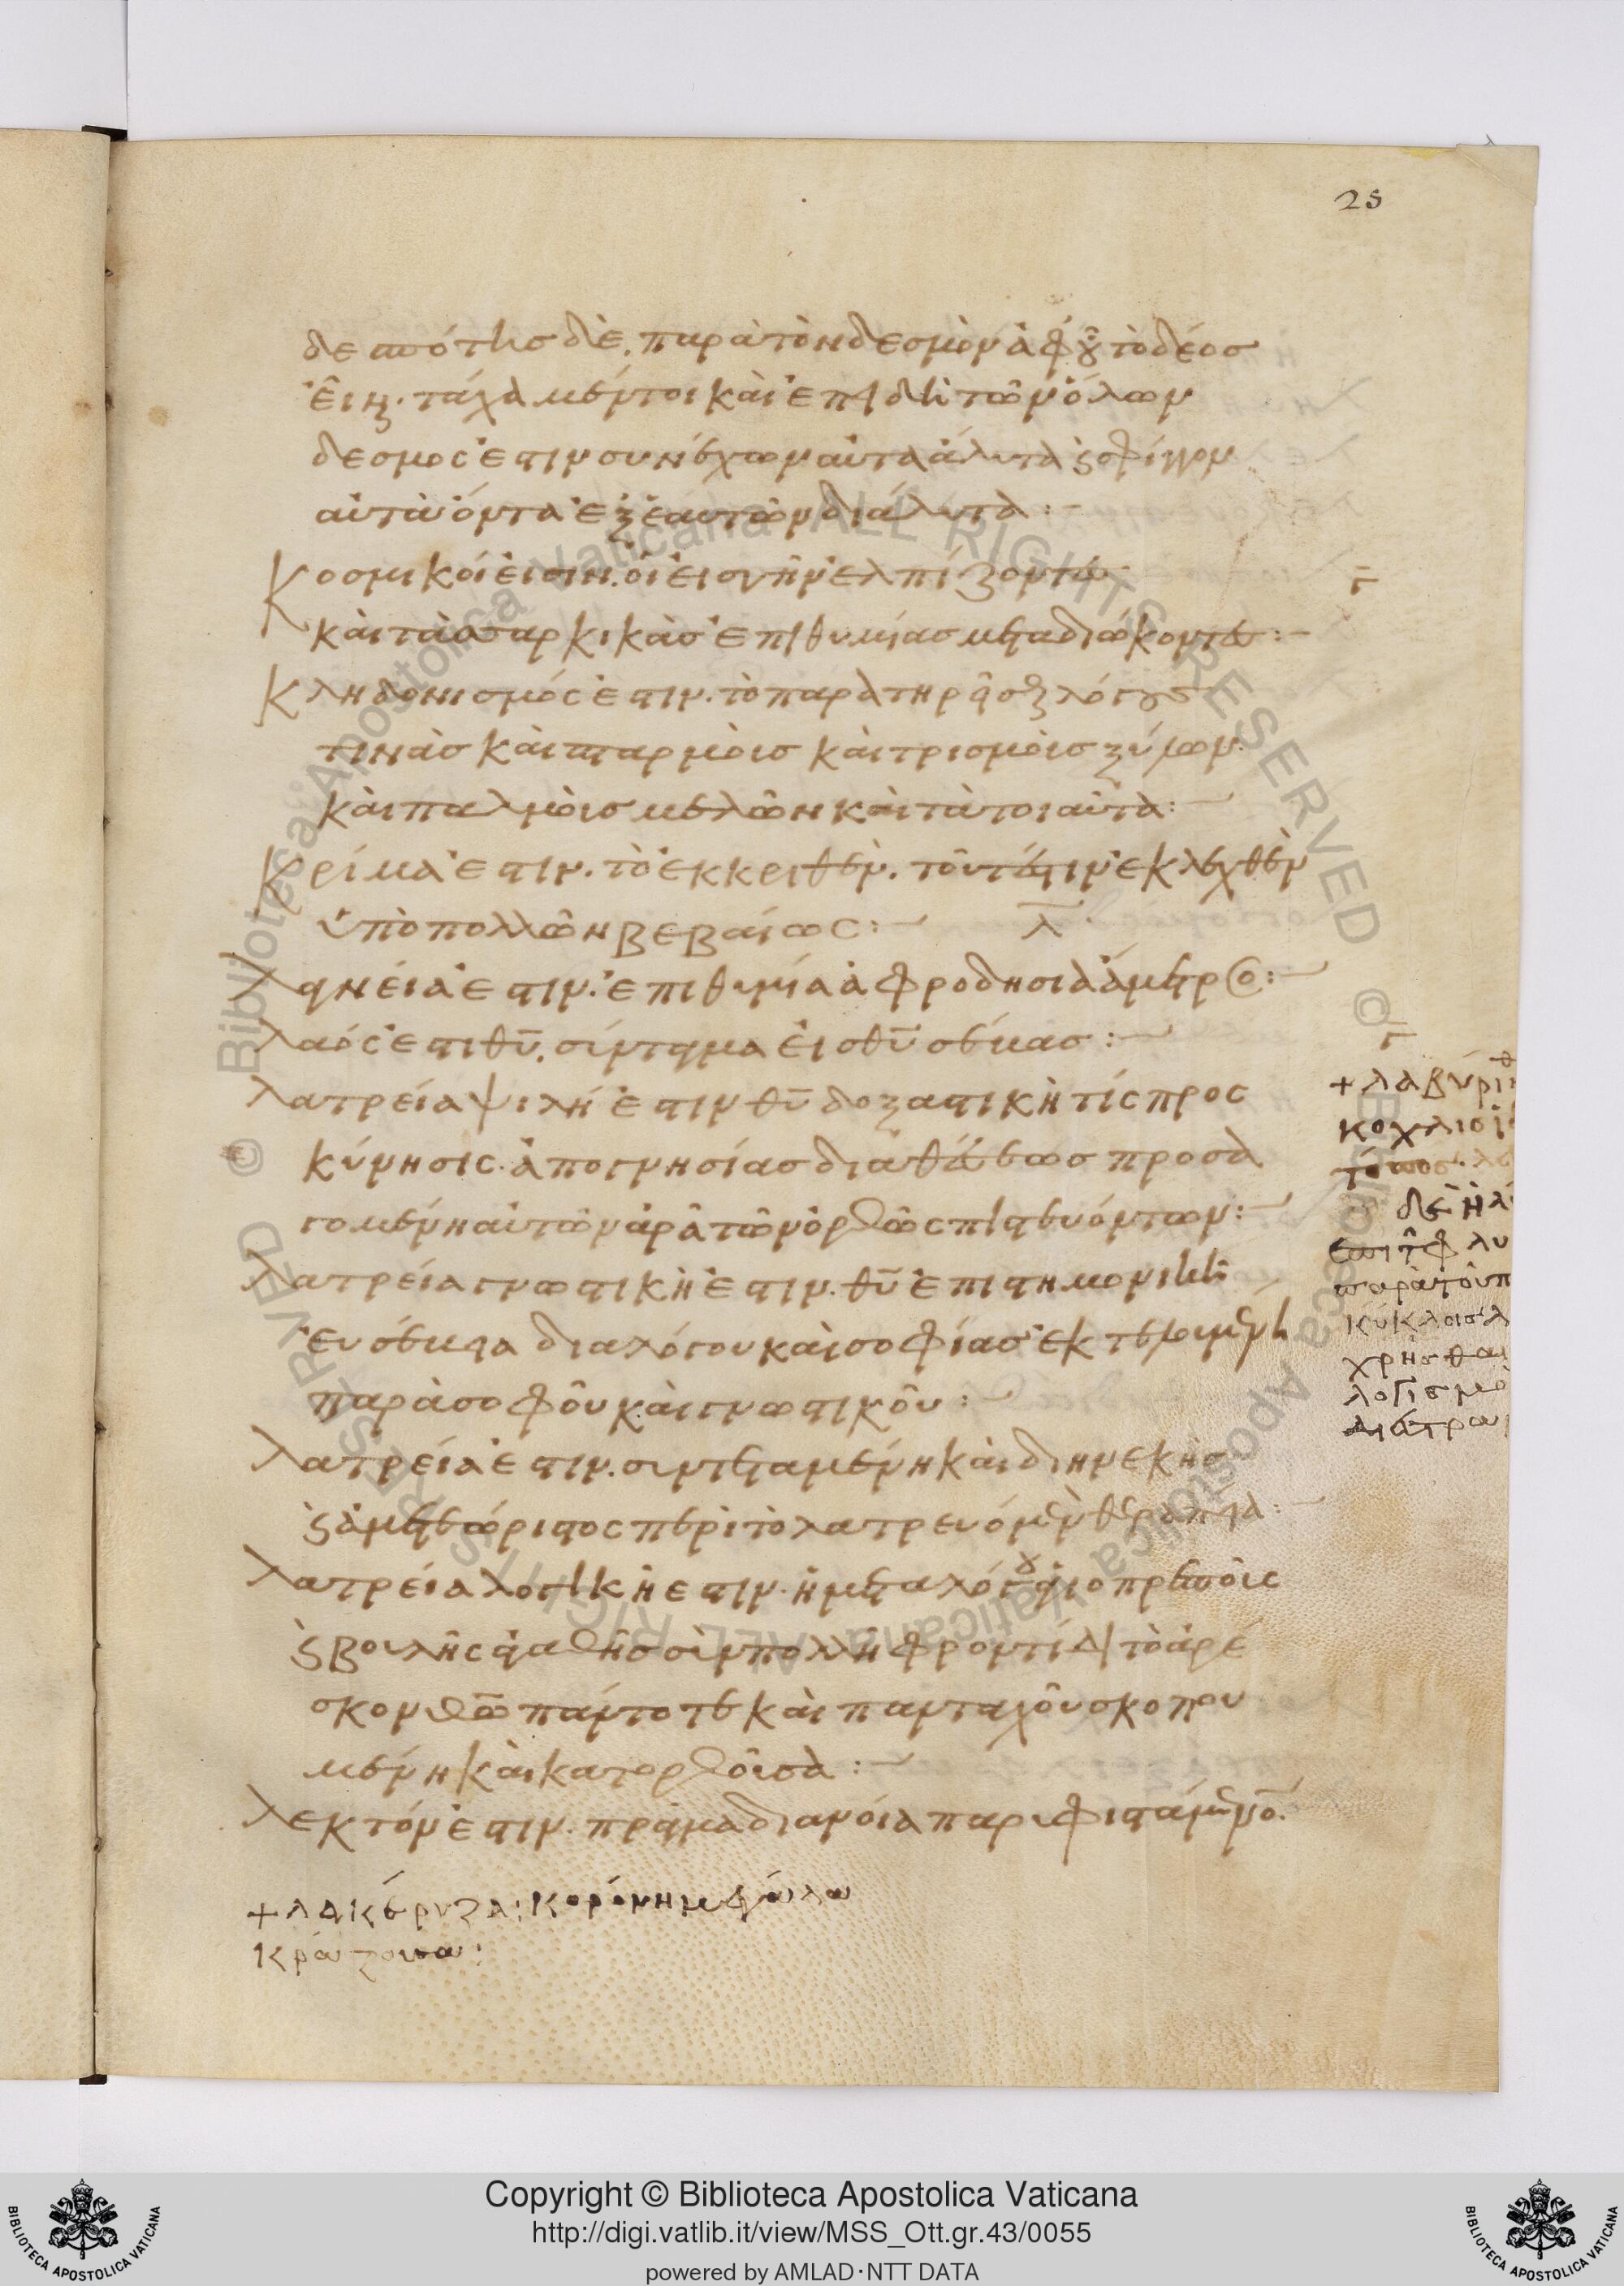 25
δεσπότης δὲ, παρὰ τὸν δεσμὸν ἀφ οὗ τὸ δέος
εἴη. τάχα μέντοι καὶ ἐπειδὴ τῶν ὅλων
δεσμός ἐστιν συνέχων αὐτὰ ἄλυτα καὶ σφίγγον
αὐτὰ ὄντα ἐξ ἑαυτῶν διάλυτα :
Κοσμικοί εἰσιν. οἱ εἰς γῆν ἐλπίζοντες
καὶ τὰς σαρκικὰς ἐπιθυμίας μεταδιώκοντες :
Κληδονισμός ἐστιν. τὸ παρατηρεῖσθαι λόγους
τινὰς καὶ πταρμοῖς καὶ τρισμοῖς ξύλων.
καὶ παλμοῖς μελῶν καὶ τὰ τοιαῦτα :
Κρίμα ἐστιν. τὸ ἐκκριθὲν. τοῦτέστιν ἐκλεχθὲν
ὑπὸ πολλῶν βεβαίως :
λ
Λαγνεία ἐστιν. ἐπιθυμία ἀφροδησία ἄμετρος :
Λαός ἐστι θυ, σύνταγμα εἰς θυ σέβας :
Λατρεία ψιλή ἐστιν θυ δοξαστικὴ τίς προς
κύνησις. ἀπογνησίας διαθέσεως προσα
γομένη αὐτῶν ἀρα τῶν ὀρθῶς πιστευόντων :
Λατρεία γνωστικὴ ἐστιν. θυ ἐπιστημονικὴ
εὐσέβεια διαλόγου καὶ σοφίας ἐκτελουμένη
παρὰ σοφοῦ καὶ γνωστικοῦ :
Λατρεία ἐστιν. συντεταμένη καὶ διηνεκὴς
καὶ ἀμετεώριστος περὶ τὸ λατρευόμενον θεραπεία :
Λατρεία λογικὴ ἐστιν. ἡ μεταλόγου ἁγιοπρεποῦς
καὶ βουλῆς ἀγαθῆς σὺν πολλῇ φροντίδι τὸ ἀρέ
σκον θῶ πάντοτε καὶ πανταχοῦ σκοπου
μένη καὶ κατορθοῦσα :
Λεκτόν ἐστιν. πράγμα διανοία παρυφιστάμενον.
+ λαβύρι
κοχλιοι
τόπος
δὲ ἡ
ἐπὶ τῶν
παρὰ τοῦ
κύκλοις
χρῆσθαι
λογισμο
+ λακέρυζα : κορόνη μεγάλα
κράζουσα :
Copyright © Biblioteca Apostolica Vaticana
http://digi.vatlib.it/view/MSS_Ott.gr.43/0055
powered by AMLAD·NTT DATA